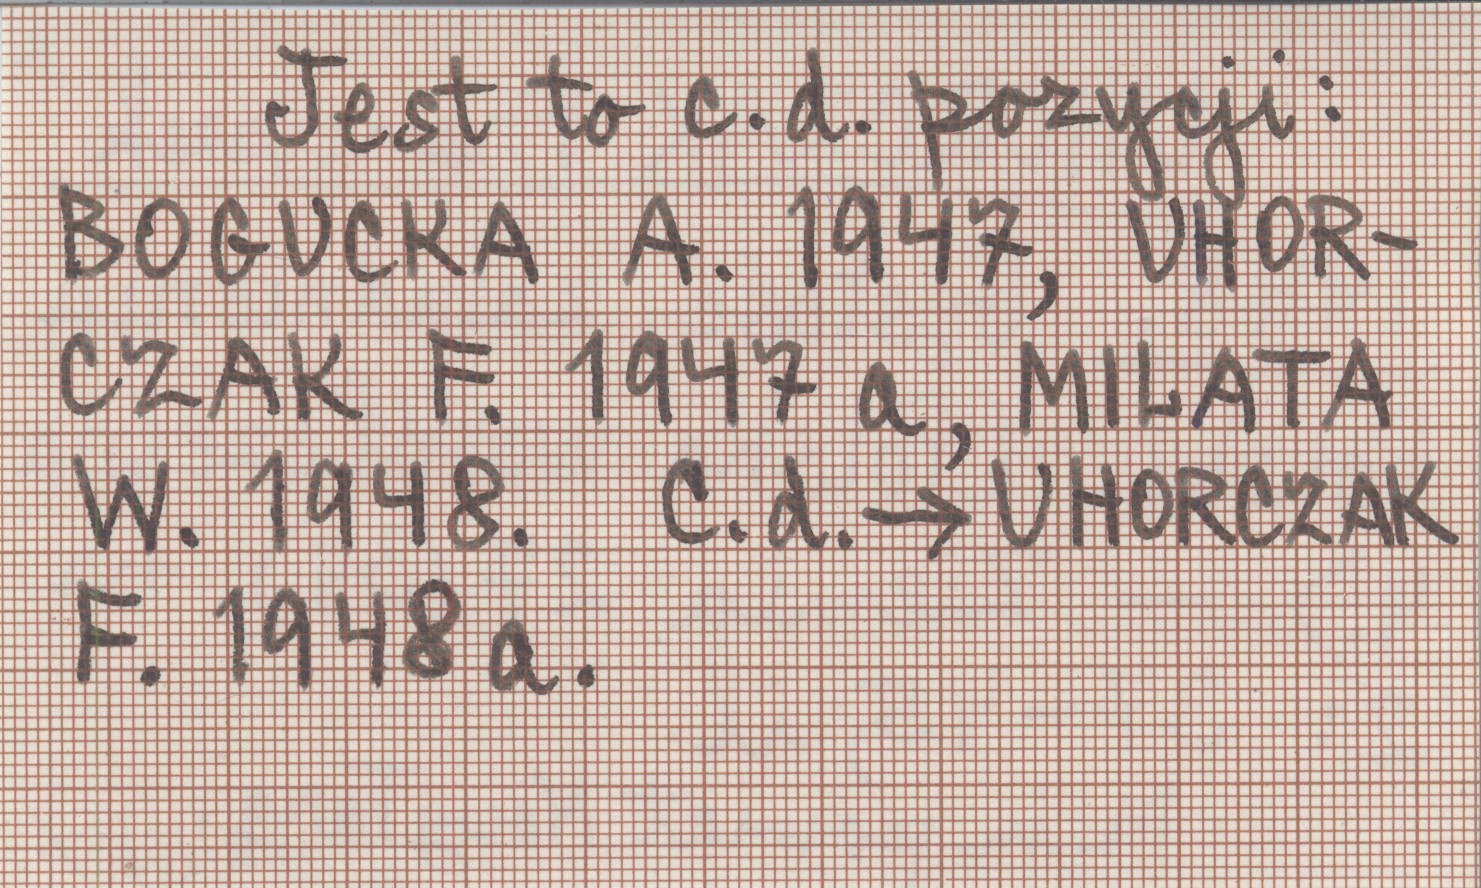 Jest to c.d. pozycji:
BOGUCKA A. 1947, UHOR-
CZAK F. 1947 a, MILATA
W. 1948. C.d. → UHORCZAK
F. 1948 a.